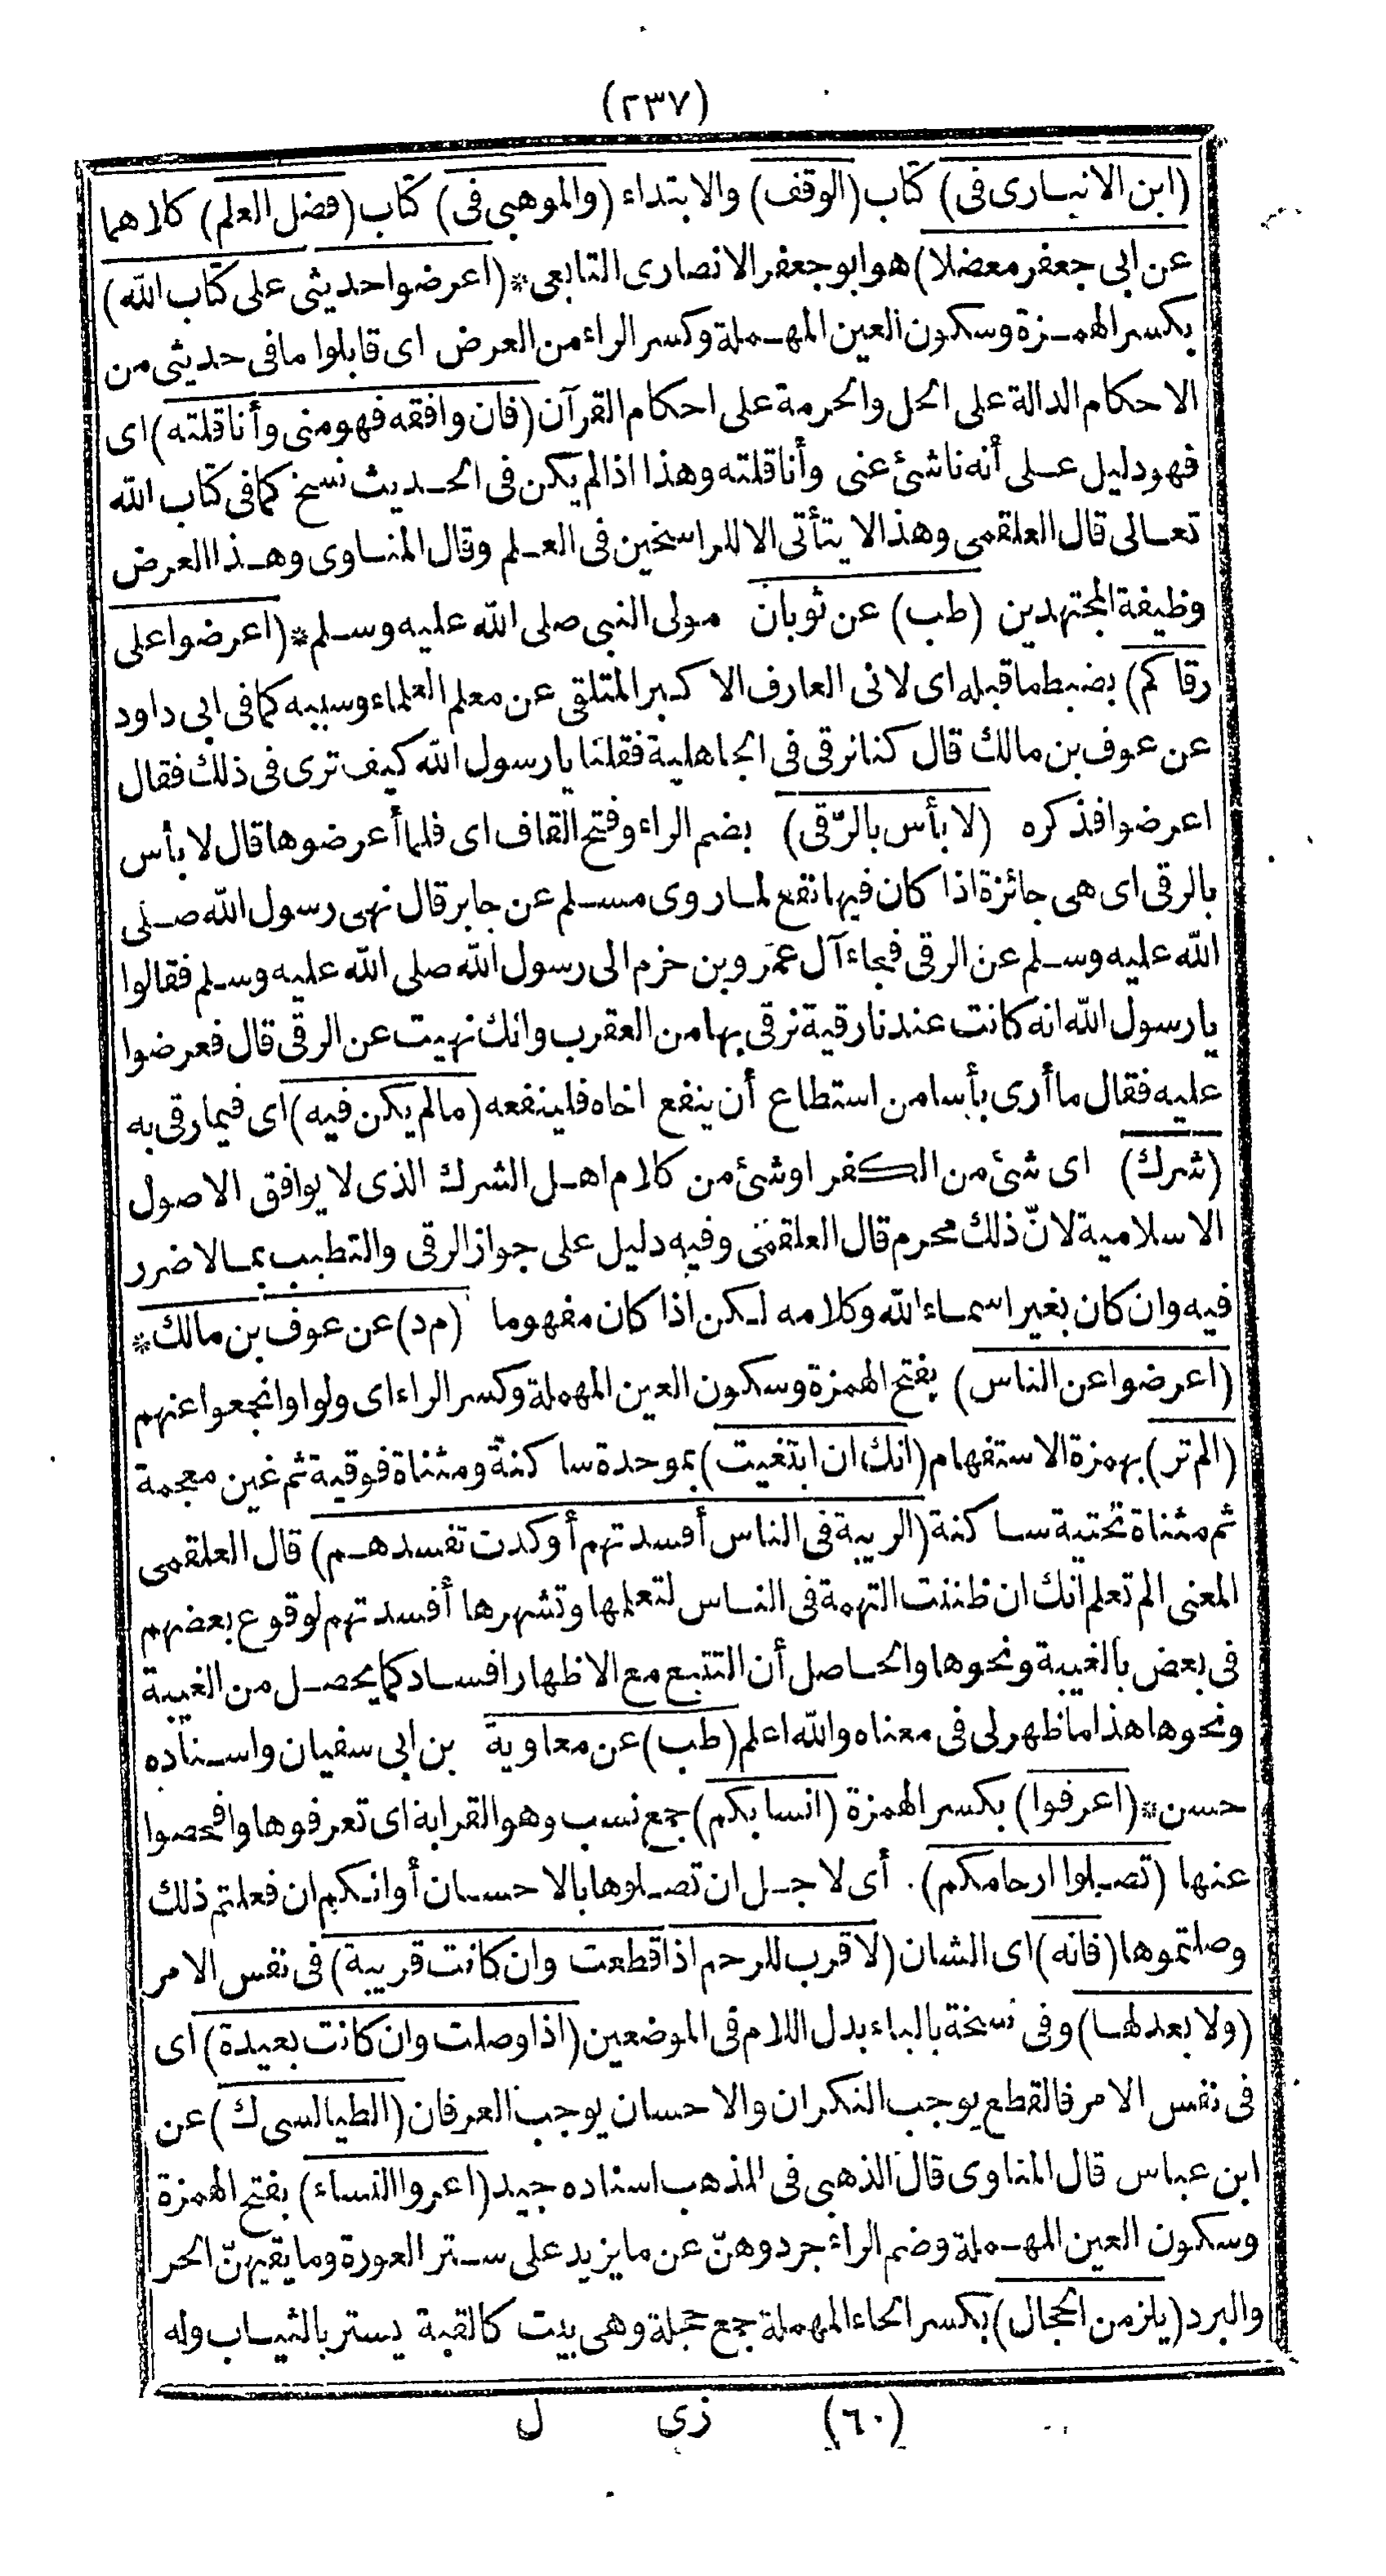 (٢٣٧)
(ابن الانبارى فى) كتاب (الوقف) والابتداء (والموهبى فى) كتاب (فضل العلم) كلاهما
عن ابى جعفر معضلا) هو ابو جعفر الانصارى التابعى * (اعرضوا حديثى على كتاب الله)
بكسر الهمزة وسكون العين المهملة وكسر الراء من العرض اى قابلوا ما فى حديثى من
الاحكام الدالة على الحل والحرمة على احكام القرآن (فان وافقه فهو منى وأنا قلته) اى
فهو دليل على أنه ناشئ عنى وأنا قلته وهذا اذا لم يكن فى الحديث نسخ كما فى كتاب الله
تعالى قال العلقمى وهذا لا يتأتى الا للراسخين فى العلم وقال المناوى وهذا العرض
وظيفة المجتهدين (طب) عن ثوبان مولى النبى صلى الله عليه وسلم * (اعرضوا على
رقاكم) بضبط ما قبله اى لانى العارف الاكبر المتلقى عن معلم العلماء وسببه كما فى ابى داود
عن عوف بن مالك قال كنا نرقى فى الجاهلية فقلنا يا رسول الله كيف ترى فى ذلك فقال
اعرضوا فذكره (لا بأس بالرّقى) بضم الراء وفتح القاف اى فلما أعرضوها قال لا بأس
بالرقى اى هى جائزة اذا كان فيها نفع لما روى مسلم عن جابر قال نهى رسول الله صلى
الله عليه وسلم عن الرقى فجاء آل عمرو بن حزم الى رسول الله صلى الله عليه وسلم فقالوا
يا رسول الله انه كانت عندنا رقية نرقى بها من العقرب وانك نهيت عن الرقى قال فعرضوا
عليه فقال ما أرى بأسا من استطاع أن ينفع اخاه فلينفعه (ما لم يكن فيه) اى فيما رقى به
(شرك) اى شئ من الكفر او شئ من كلام اهل الشرك الذى لا يوافق الاصول
الاسلامية لانّ ذلك محرم قال العلقمى وفيه دليل على جواز الرقى والتطبب بما لا ضرر
فيه وان كان بغير اسماء الله وكلامه لكن اذا كان مفهوما (م د) عن عوف بن مالك *
(اعرضوا عن الناس) بفتح الهمزة وسكون العين المهملة وكسر الراء اى ولوا وانجمعوا عنهم
(الم تر) بهمزة الاستفهام (انك ان ابتغيت) بموحدة ساكنة ومثناة فوقية ثم غين معجمة
ثم مثناة تحتية ساكنة (الريبة فى الناس أفسدتهم أو كدت تفسدهم) قال العلقمى
المعنى الم تعلم انك ان ظننت التهمة فى الناس لتعلمها وتشهرها أفسدتهم لوقوع بعضهم
فى بعض بالغيبة ونحوها والحاصل أن التتبع مع الاظهار افساد كما يحصل من الغيبة
ونحوها هذا ما ظهر لى فى معناه والله اعلم (طب) عن معاوية بن ابى سفيان واسناده
حسن * (اعرفوا) بكسر الهمزة (انسابكم) جمع نسب وهو القرابة اى تعرفوها وافحصوا
عنها (تصلوا ارحامكم) . أى لاجل ان تصلوها بالاحسان أو انكم ان فعلتم ذلك
وصلتموها (فانه) اى الشان (لا قرب للرحم اذا قطعت وان كانت قريبة) فى نفس الامر
(ولا بعد لها) وفى نسخة بالباء بدل اللام فى الموضعين (اذا وصلت وان كانت بعيدة) اى
فى نفس الامر فالقطع يوجب النكران والاحسان يوجب العرفان (الطيالسى ك) عن
ابن عباس قال المناوى قال الذهبى فى المذهب اسناده جيد (اعروا النساء) بفتح الهمزة
وسكون العين المهملة وضم الراء جردوهنّ عن ما يزيد على ستر العورة وما يقيهنّ الحر
والبرد (يلزمن الحجال) بكسر الحاء المهملة جمع حجلة وهى بيت كالقبة يستر بالثياب وله
(٦٠) زى ل